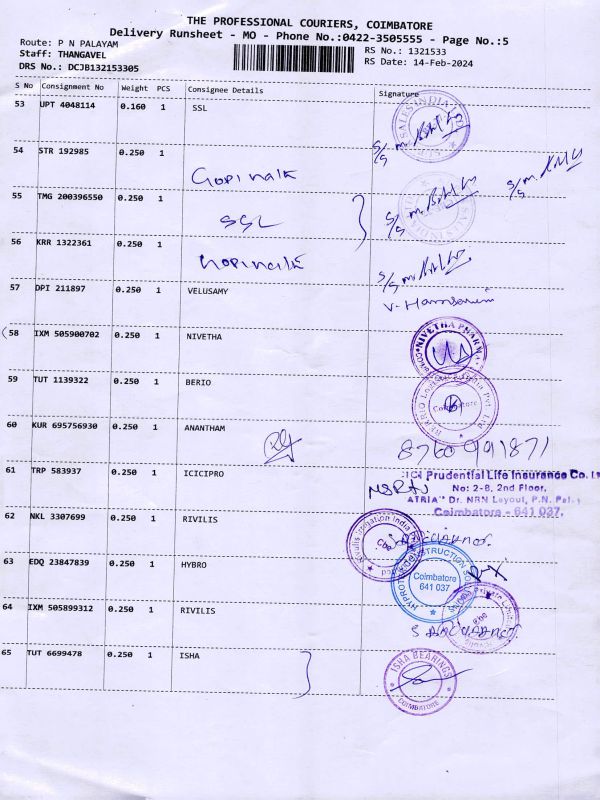 THE PROFESSIONAL COURIERS, COIMBATORE
Delivery Runsheet - MO - Phone No.:0422-3505555 - Page No.:5
Route: P N PALAYAM
RS No.: 1321533
Staff: THANGAVEL
RS Date: 14-Feb-2024
DRS No.: DCJB132153305
S No Consignment No Weight PCS Consignee Details Signature
53 UPT 4048114 0.160 1 SSL
54 STR 192985 0.250 1
Gopinath
55 TMG 200396550 0.250 1
SSL
56 KRR 1322361 0.250 1
Gopinath
57 DPI 211897 0.250 1 VELUSAMY
58 IXM 505900702 0.250 1 NIVETHA
NIVETHA PHARMA
59 TUT 1139322 0.250 1 BERIO
Coimbatore
60 KUR 695756930 0.250 1 ANANTHAM
8760991871
61 TRP 583937 0.250 1 ICICIPRO
ICICI Prudential Life Insurance Co.
No: 2-8, 2nd Floor,
ATRIA" Dr. NRN Layout, P.N.
Coimbatore - 641 037.
62 NKL 3307699 0.250 1 RIVILIS
Rivulis Irrigation India
Cbe
63 EDQ 23847839 0.250 1 HYBRO
Coimbatore
641 037
64 IXM 505899312 0.250 1 RIVILIS
Cbe
65 TUT 6699478 0.250 1 ISHA
ISHA BEARINGS
COIMBATORE